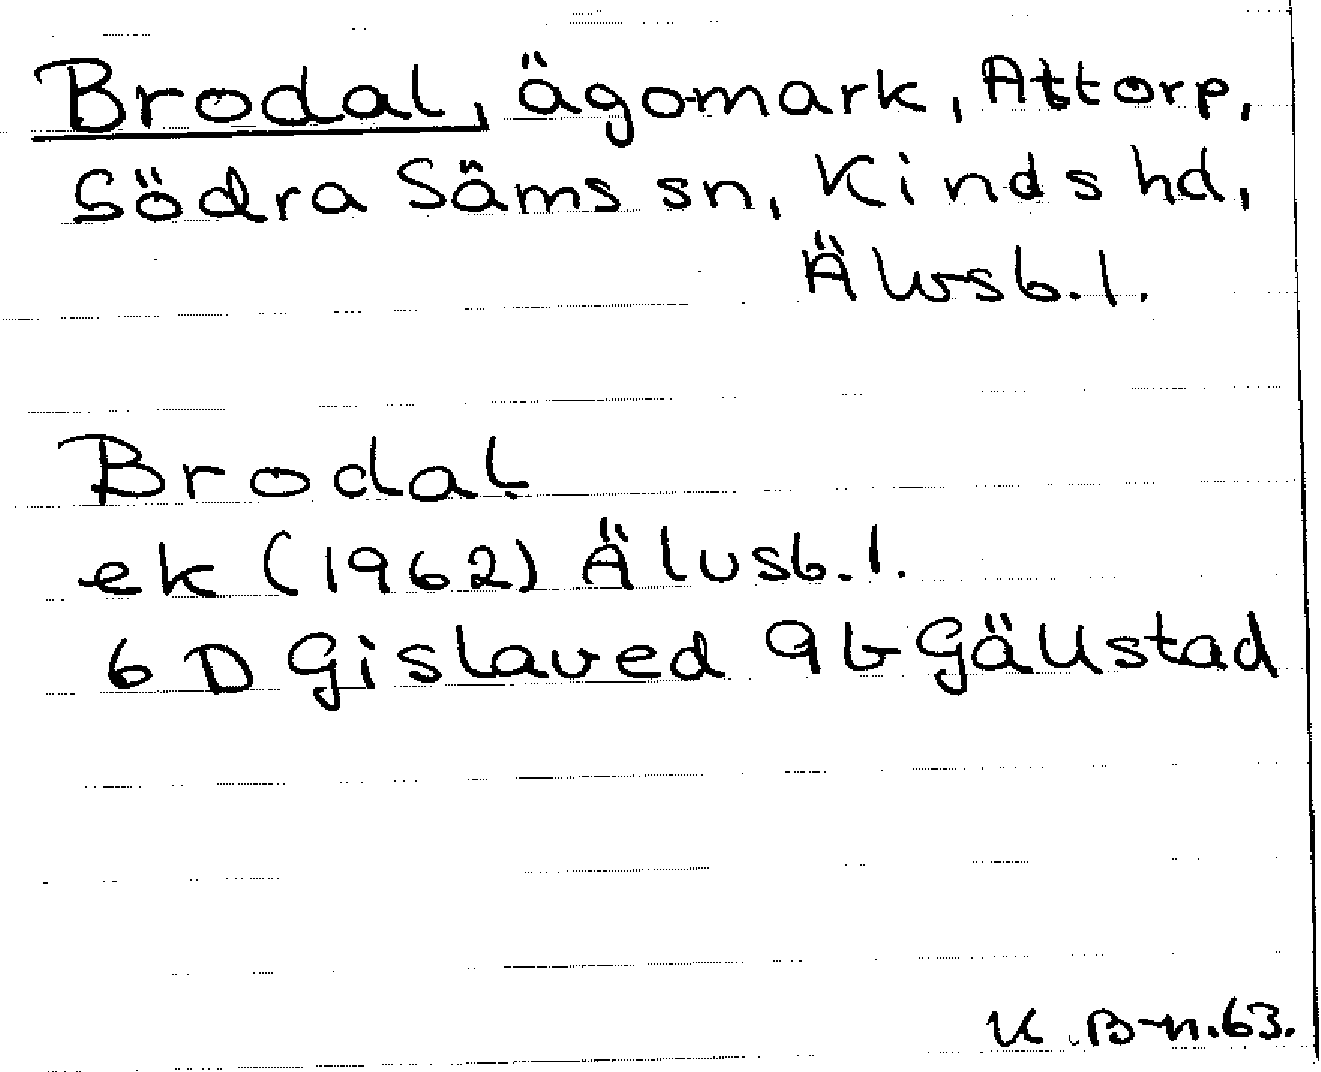 Brodal, ägomark, Attorp,
Södra Säms sn, Kinds hd,
Älvsb. l.
Brodal
ek (1962) Älvsb. l.
6 D Gislaved 9 b Gällstad
K. B-n. 63.